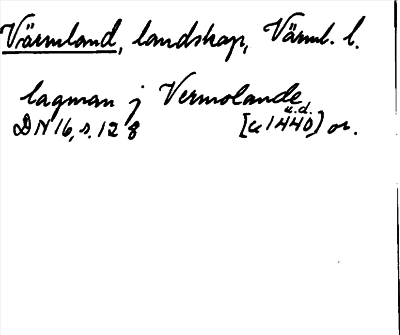 Värmland, landskap, Värml. l.
lagman j Vermolande
u.d.
DN 16, s. 128 [c 1440] or.